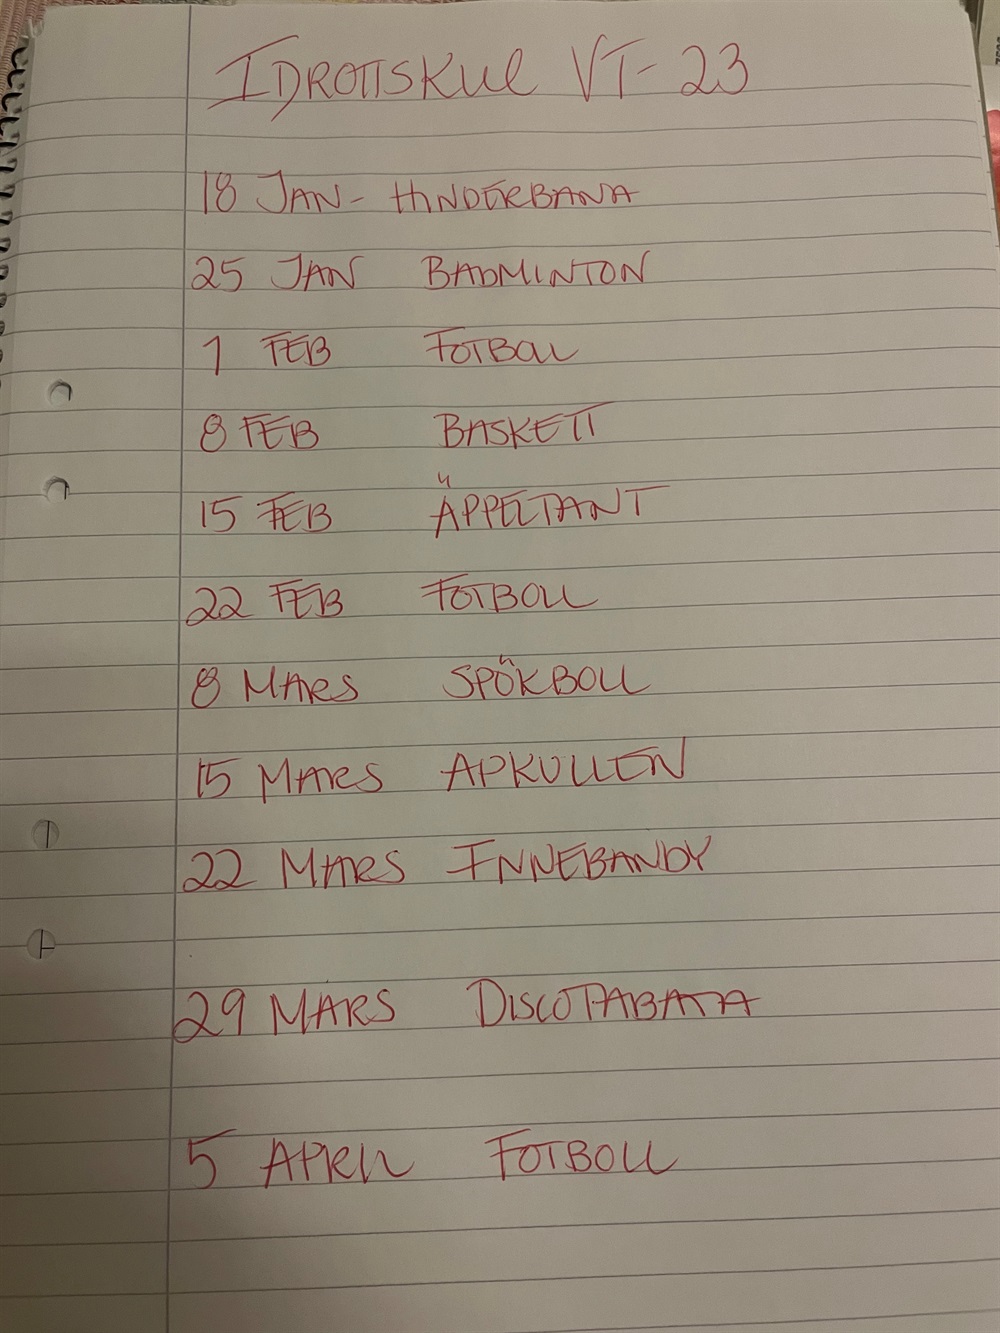 IDROTTSKUL VT-23
18 JAN- HINDERBANA
25 JAN BADMINTON
1 FEB FOTBOLL
8 FEB BASKETT
15 FEB ÄPPELTANT
22 FEB FOTBOLL
8 MARS SPÖKBOLL
15 MARS APKULLEN
22 MARS INNEBANDY
29 MARS DISCOTABATA
5 APRIL FOTBOLL